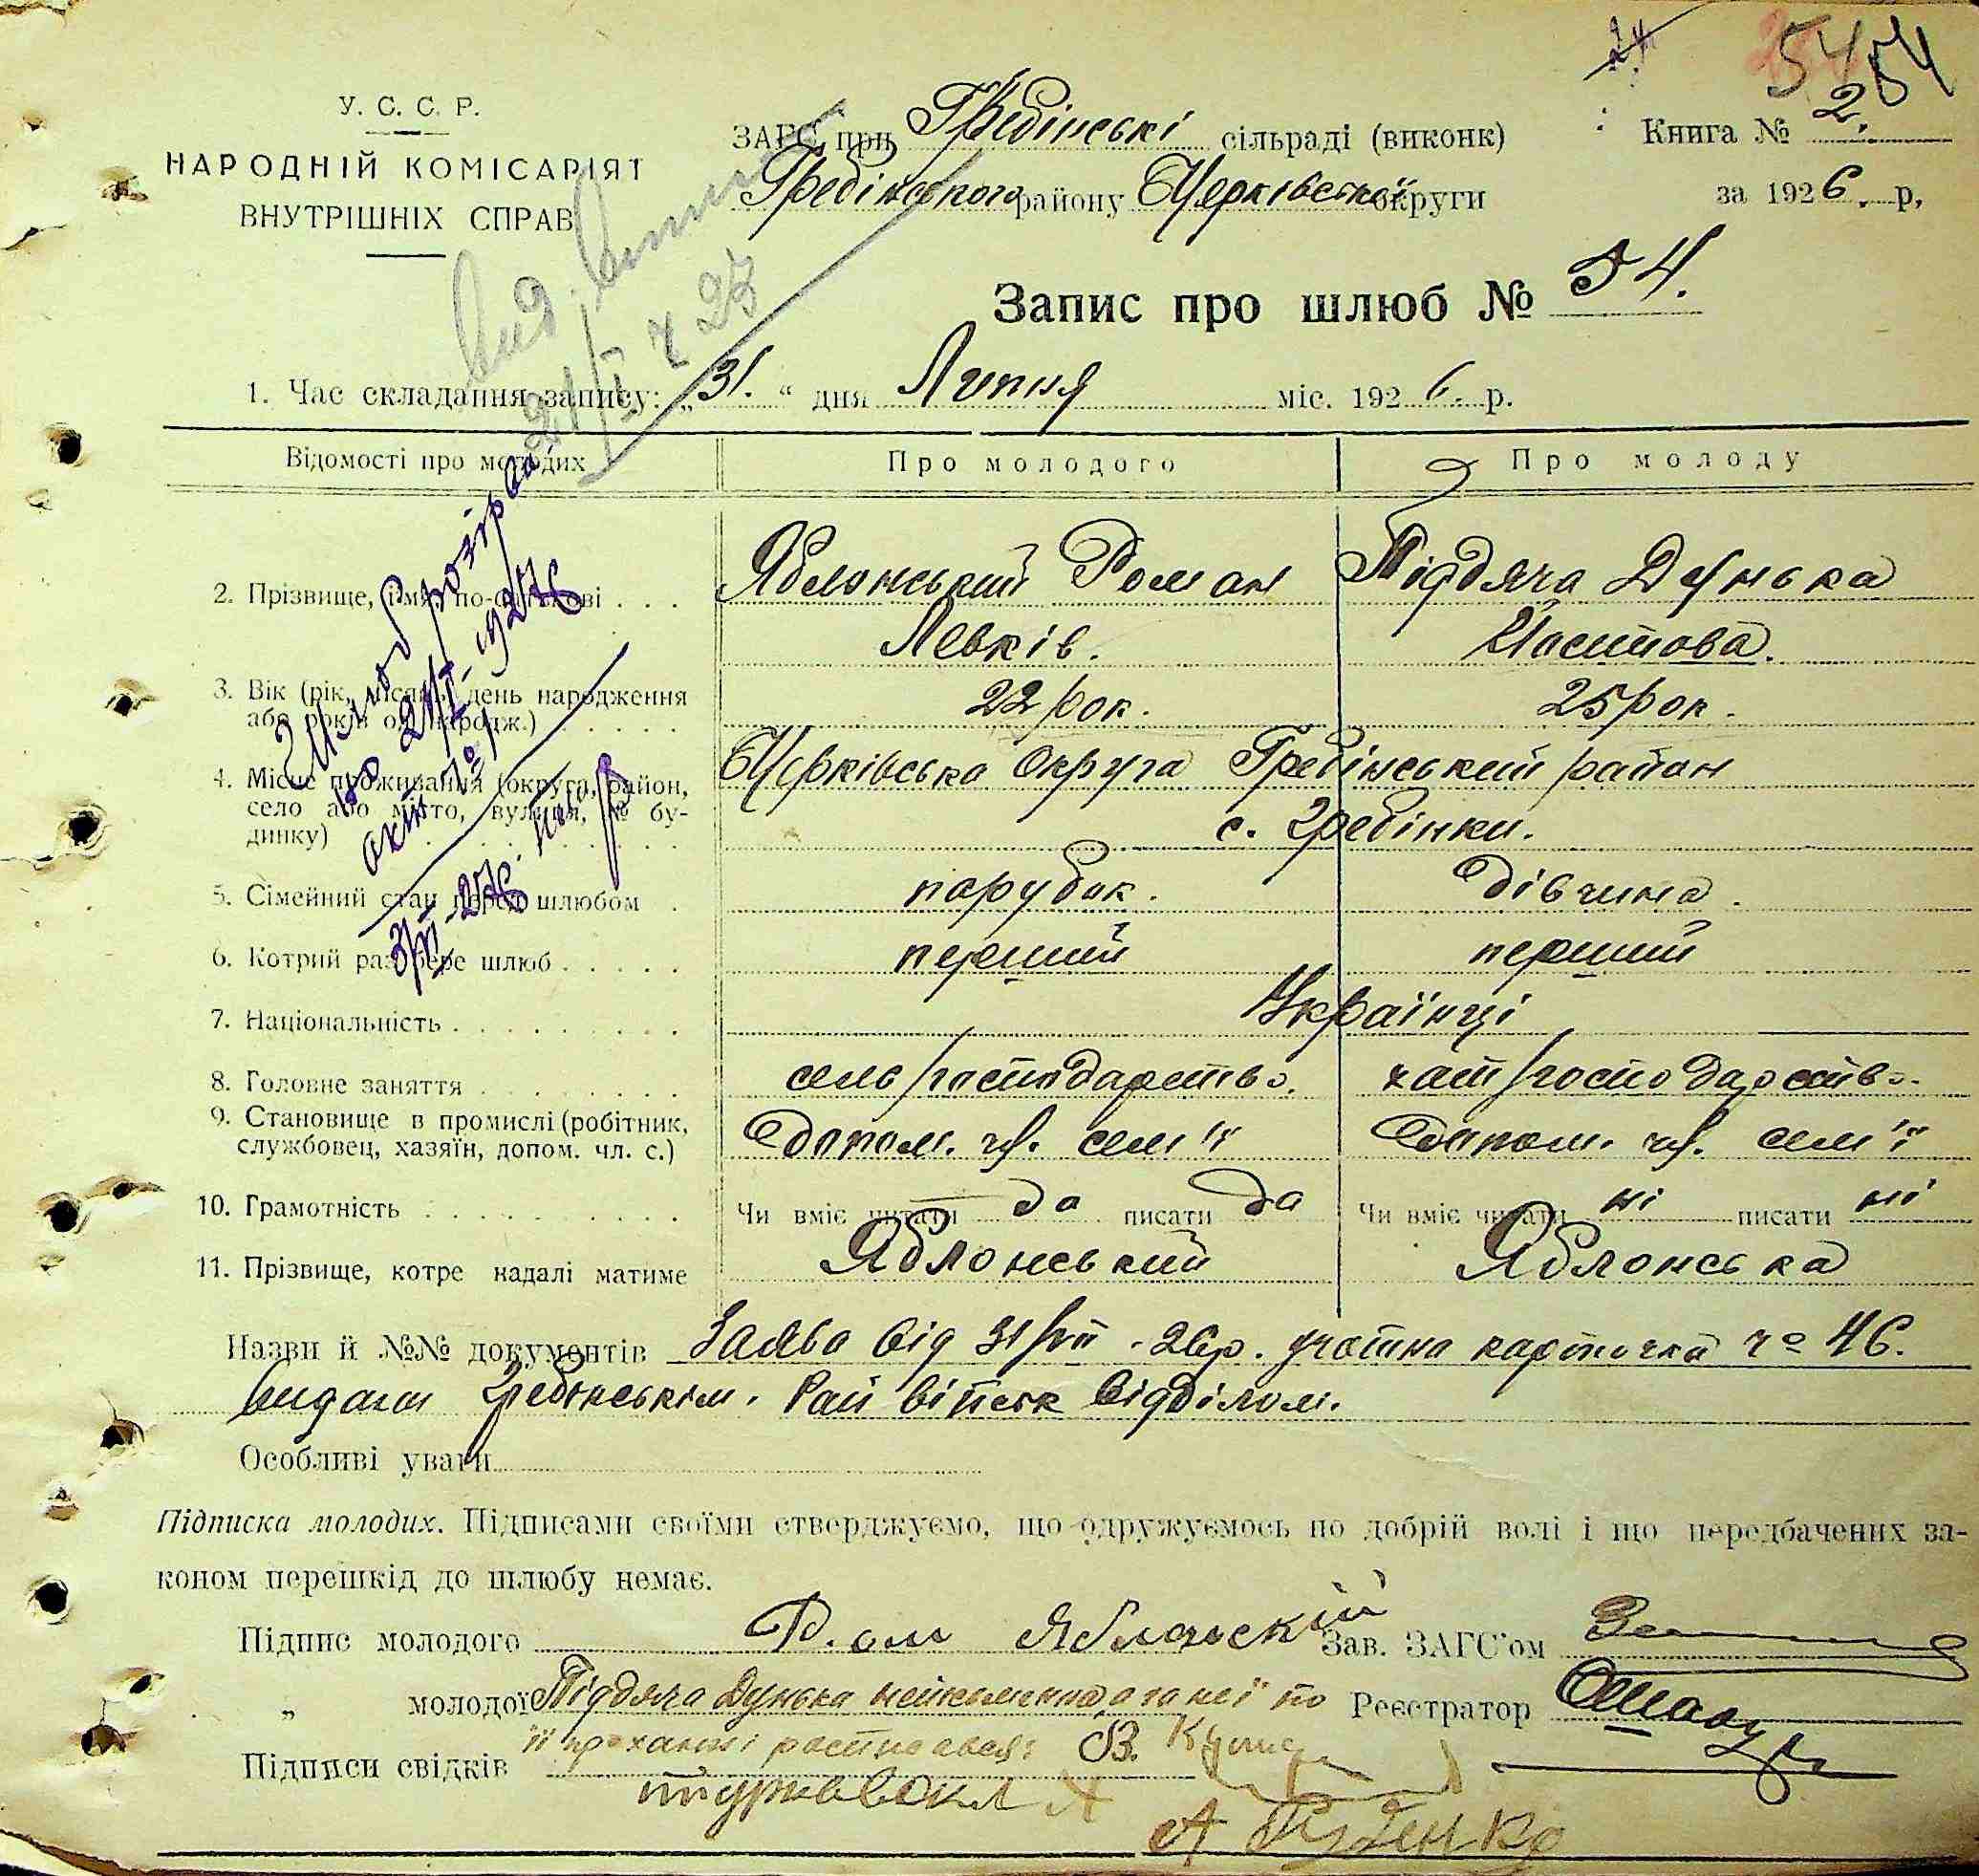 54
У. С. С. Р.
НАРОДНІЙ КОМІСАРІЯТ
ВНУТРІШНІХ СПРАВ
ЗАГС при Гребінські сільраді (виконк)
Книга № 2.
Гребінського району БЦерківської округи
за 1926. р,
Запис про шлюб № 54.
1. Час складання запису: „31. “ дня Липня міс. 1926. р.
Відомості про молодих
Про молодого
Про молоду
2. Прізвище, ім'я, по-батькові . . .
Яблонський Роман
Левків.
Піддяча Дунька
Йосипова.
3. Вік (рік, місяць, день народження
або років од народж.) . . . . .
22 рок.
25 рок.
4. Місце проживання (округа, район,
село або місто, вулиця, № бу-
динку)
БЦерківська округа Гребінський район
с. Гребінки.
5. Сімейний стан перед шлюбом .
парубок.
дівчина.
6. Котрий раз бере шлюб . . . . .
перший
перший
7. Національність . . . . . . . . .
Українці
8. Головне заняття . . . . . . . .
сель/господарство.
хат/господарство.
9. Становище в промислі (робітник,
службовец, хазяїн, допом. чл. с.)
Допом. чл. сем'ї
Допом. чл. сем'ї
10. Грамотність . . . . . . . . . .
Чи вміє читати да писати да
Чи вміє читати ні писати ні
11. Прізвище, котре надалі матиме
Яблонський
Яблонська
Назви й №№ документів Заява від 31/VII - 26р. учотна карточка чº 46.
видана Гребінським. Рай військ відділом.
Особливі уваги
Підписка молодих. Підписами своїми стверджуємо, що одружуємось по добрій волі і що передбачених за-
коном перешкід до шлюбу немає.
Підпис молодого
Зав. ЗАГС'ом
„ молодої Піддяча Дунька неписьменна а за неї по
Реєстратор
її проханні росписався:
Підписи свідків
А Руденко
Шлюб розірвано
21/I-1927р